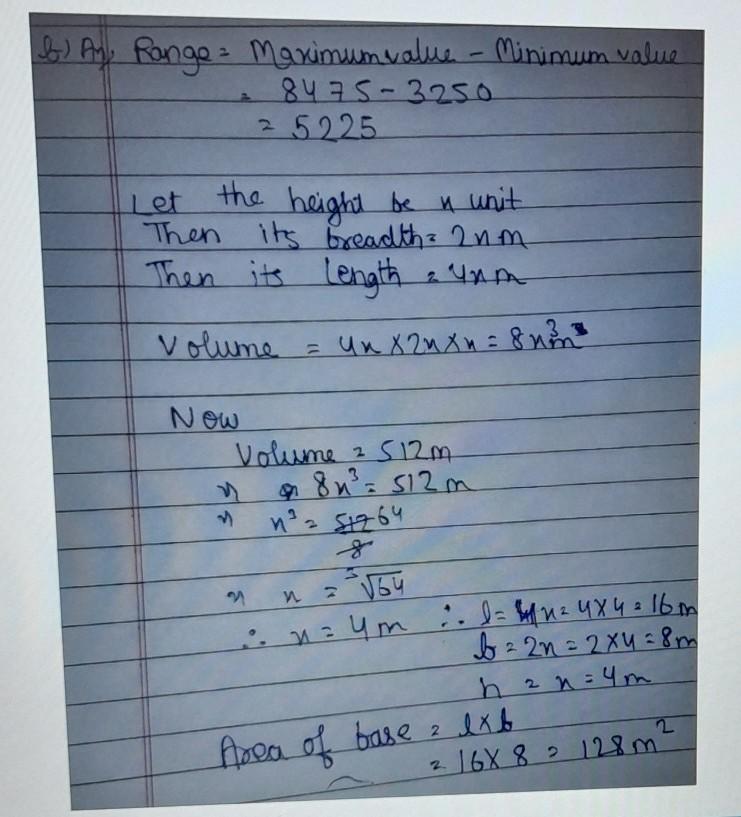 b) Ans. Range = Maximum value - Minimum value
= 8475 - 3250
= 5225
Let the height be x unit
Then its breadth = 2x m
Then its length = 4x m
Volume = 4x × 2x × x = 8x³m³
Now
Volume = 512m
" 8x³ = 512m
" x³ = 512 64
8
" x = ³√64
∴ x = 4m ∴ l = 4x = 4×4 = 16m
b = 2x = 2×4 = 8m
h = x = 4m
Area of base = l×b
= 16×8 = 128m²